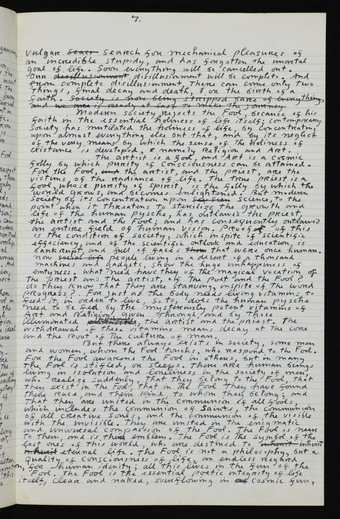 7.
vulgar search for mechanical pleasures of
an incredible stupidy, and has forgotten the immortal
goal of life. Soon everything will be cancelled out.
Our disillusionment will be complete. And
from complete disillusionment, there can come only two
things, final decay and death, or the birth of a
faith. Society is now being stripped bare of everything,
and we are ready at last to make the journey.
Modern society rejects the Fool, because of his
faith in the essential holiness of life itself; contemporary
society has mutilated the holiness of life, by concentrating
upon almost everything else but that, and by its neglect
of the very means by which the sense of the holiness of
existence is developed, namely Religion and Art.
The artist is a fool, and Art is a cosmic
folly by which purity of consciousness can be attained.
For the Fool, the artist and the priest are the
victims of the radiance of life. The true priest is a
Fool, whose purity of spirit is the folly by which the
world grows, and becomes enlightened. But modern
society of its concentration upon science, to the
point where it threatens to sterilize the growth and
life of the human psyche, has outlawed the priest,
the artist and the Fool; and has consequently outlawed
an entire field of human vision. Proof of this
is the condition of society, which in spite of scientific
efficiency, and of the scientific outlook and education, is
bankrupt, and full of greed. There were once human,
now people living in a desert of a thousand
machines and gadgets, show the huge unhappiness of
emptyness. What need have they of the magical vocation of
the priest and the artist; of the poet and the Fool?
Do they know that they are starving, in spite of the word
progress? For just as the body needs living vitamins to
feed it in order to live. So to, does the human psyche
need to be fed by the mysteriously potent vitamins of
Art and Religion, given through, and by those
illuminated the artist and the priest. The
withdrawal of these vitamins means decay at the core
and the root of the culture of man.
But there always exists in society, some men
and women, whom the Fool touches, who respond to the Fool.
For the Fool awakens the Fool in others, but in many
the Fool is stifled, or sleeps. There are human beings
living in isolation and loneliness in the society of men,
who realise suddenly, that they belong to the Fool, that
they exist in the Fool; that in the Fool they have found
their race, and them kind to whom they belong; and
that they are united in the Communion of all Fools;
which includes the Communion of Saints, the Communion
of all creative souls, and the communion of the visible
with the invisible. They are united in the enigmatic
and universal compassion of the Fool. The Fool is near
to them, and is them. The Fool is the symbol of the
lost ones of this world, who are destined to inherit
eternal life. The Fool is not a philosophy, but a
quality of consciousness of life, an endless regard
for human identity; all this lives in the
Fool. The Fool is the essential poetic integrity of life
itself, clear and naked, overflowing in cosmic fun,